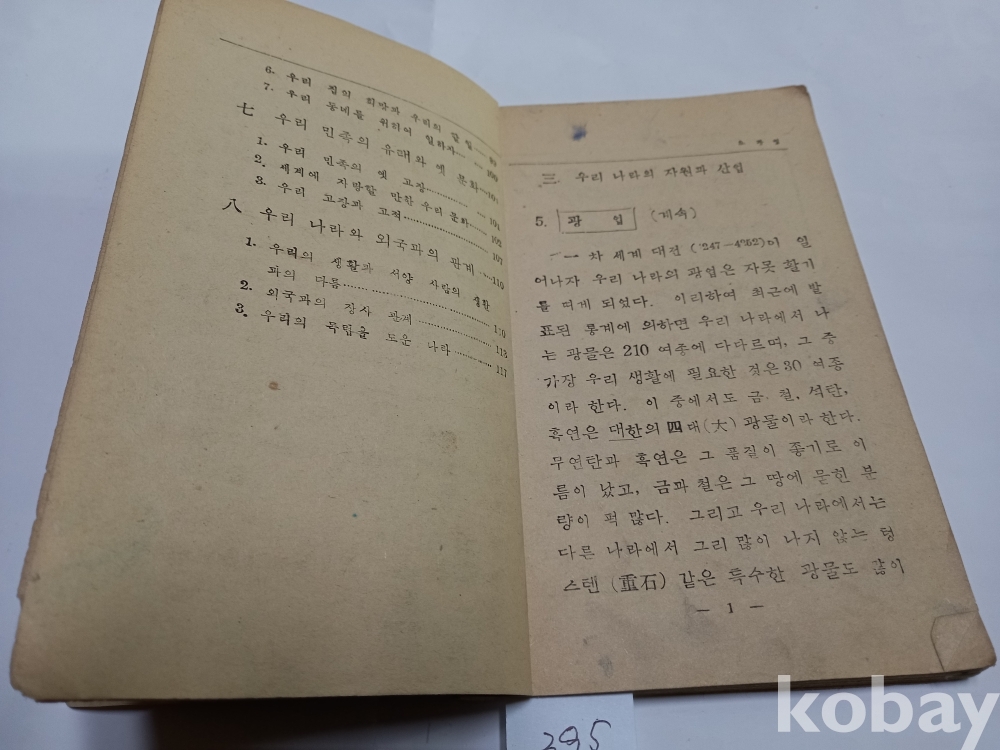 6. 우리 집의 희망과 우리의 할 일 99
7. 우리 동네를 위하여 일하자 100
七 우리 민족의 유래와 옛 문화 101
1. 우리 민족의 옛 고장 101
2. 세계에 자랑할 만한 우리 문화 102
3. 우리 고장과 고적 107
八 우리 나라와 외국과의 관계 110
1. 우리의 생활과 서양 사람의 생활
과의 다름 110
2. 외국과의 장사 관계 113
3. 우리의 독립을 도운 나라 117
三 우리 나라의 자원과 산업
5. 광 업 (계속)
一차 세계 대전 (4247—4252)이 일
어나자 우리 나라의 광업은 자못 활기
를 띠게 되었다. 이리하여 최근에 발
표된 통계에 의하면 우리 나라에서 나
는 광물은 210 여종에 다다르며, 그 중
가장 우리 생활에 필요한 것은 30 여종
이라 한다. 이 중에서도 금. 철, 석탄,
흑연은 대한의 四대(大) 광물이라 한다.
무연탄과 흑연은 그 품질이 좋기로 이
름이 났고, 금과 철은 그 땅에 묻힌 분
량이 퍽 많다. 그리고 우리 나라에서는
다른 나라에서 그리 많이 나지 않는 텅
스텐 (重石) 같은 특수한 광물도 많이
— 1 —
295
kobay